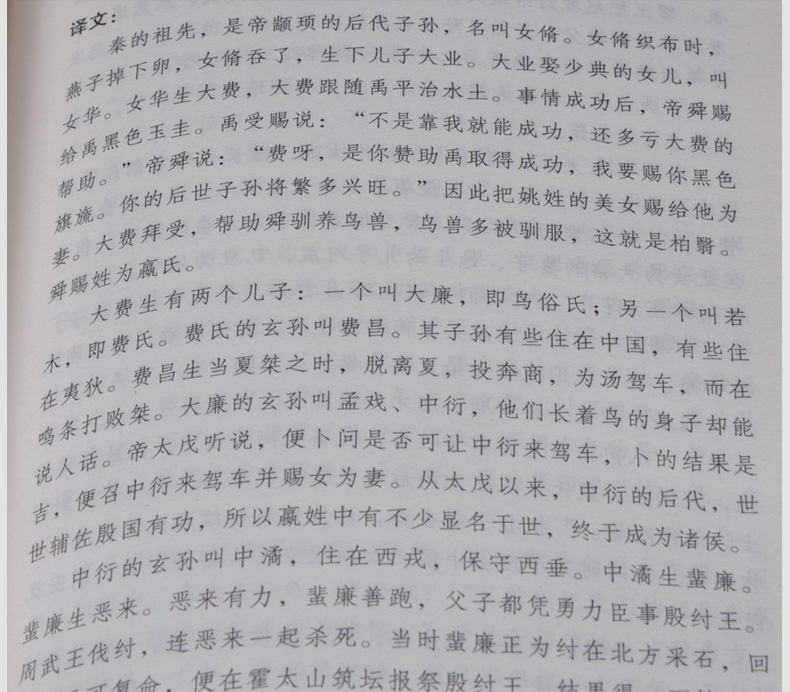 译文：
秦的祖先，是帝颛顼的后代子孙，名叫女脩。女脩织布时，
燕子掉下卵，女脩吞了，生下儿子大业。大业娶少典的女儿，叫
女华。女华生大费，大费跟随禹平治水土。事情成功后，帝舜赐
给禹黑色玉圭。禹受赐说：“不是靠我就能成功，还多亏大费的
帮助。”帝舜说：“费呀，是你赞助禹取得成功，我要赐你黑色
旗旒。你的后世子孙将繁多兴旺。”因此把姚姓的美女赐给他为
妻。大费拜受，帮助舜驯养鸟兽，鸟兽多被驯服，这就是柏翳。
舜赐姓为嬴氏。
大费生有两个儿子：一个叫大廉，即鸟俗氏；另一个叫若
木，即费氏。费氏的玄孙叫费昌。其子孙有些住在中国，有些住
在夷狄。费昌生当夏桀之时，脱离夏，投奔商，为汤驾车，而在
鸣条打败桀。大廉的玄孙叫孟戏、中衍，他们长着鸟的身子却能
说人话。帝太戊听说，便卜问是否可让中衍来驾车，卜的结果是
吉，便召中衍来驾车并赐女为妻。从太戊以来，中衍的后代，世
世辅佐殷国有功，所以嬴姓中有不少显名于世，终于成为诸侯。
中衍的玄孙叫中潏，住在西戎，保守西垂。中潏生蜚廉。
蜚廉生恶来。恶来有力，蜚廉善跑，父子都凭勇力臣事殷纣王。
周武王伐纣，连恶来一起杀死。当时蜚廉正为纣在北方采石，回
可复命，便在霍太山筑坛报祭殷纣王，结果得